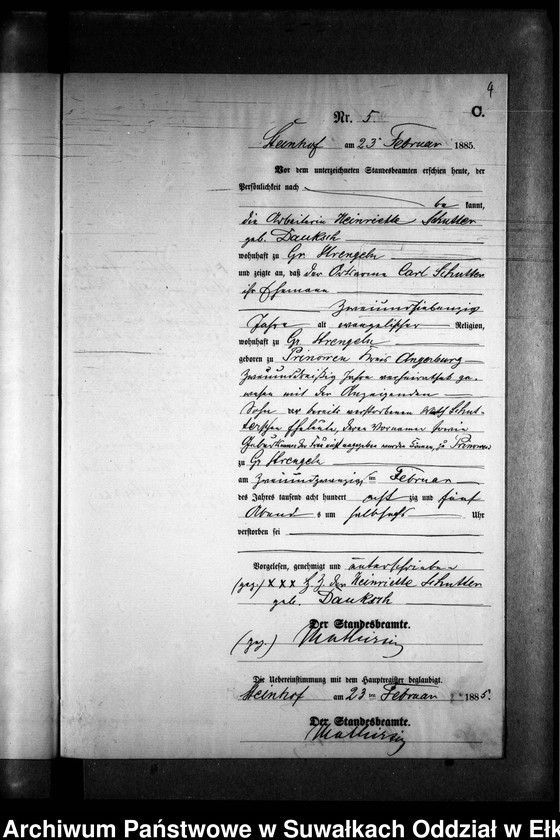 4
Nr. 5
C.
Steinhof am 23ᵗ Februar 1885.
Vor dem unterzeichneten Standesbeamten erschien heute, der
Persönlichkeit nach
be kannt,
die Arbeiterin Heinriette Schutter
geb. Dauksch
wohnhaft zu Gr Strengeln
und zeigte an, daß der Ortsarme Carl Schutter
ihr Ehemann
Zweiundsiebenzig
Jahre alt evangelischer Religion,
wohnhaft zu Gr. Strengeln
geboren zu Prinowen Kreis Angerburg
Zweiunddreißig Jahre verheirathet ge-
wesen mit der Anzeigenden
Sohn der bereits verstorbenen Schut-
terschen Eheleute, deren Vornamen sowie
Geburtsname der Frau nicht angegeben werden können, zu Prinowen
zu Gr Strengeln
am Zweiundzwanzigsten Februar
des Jahres tausend acht hundert acht zig und fünf
Abend s um halbsechs Uhr
verstorben sei
Vorgelesen, genehmigt und unterschrieben
(gez.) XXX H. Z. der Heinriette Schutter
geb. Dauksch
Der Standesbeamte.
(gez.)
Die Uebereinstimmung mit dem Hauptregister beglaubigt.
Steinhof am 23ten Februar 1885.
Der Standesbeamte.
Archiwum Państwowe w Suwałkach Oddział w Ełk